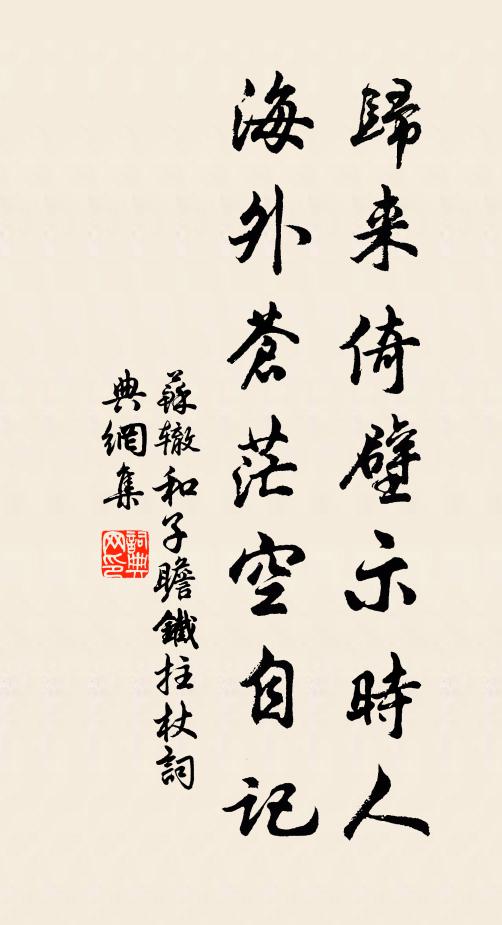 歸来倚壁示時人
海外蒼茫空自記
蘇轍和子瞻鐵拄杖詞
典網集
詞典
网印